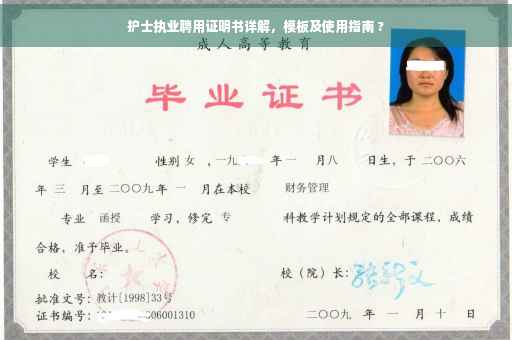 护士执业聘用证明书详解，模板及使用指南？
成人高等教育
毕业证书
学生 性别 女 ，一九 年 一 月 八 日生，于二〇〇六
年 三 月至二〇〇九年 一 月在本校 财务管理
专业 函授 学习，修完 专 科教学计划规定的全部课程，成绩
合格，准予毕业。
校 名： 校（院）长：
批准文号：教计[1998]33号
证书编号： 06001310 二〇〇九 年 一 月 十 日